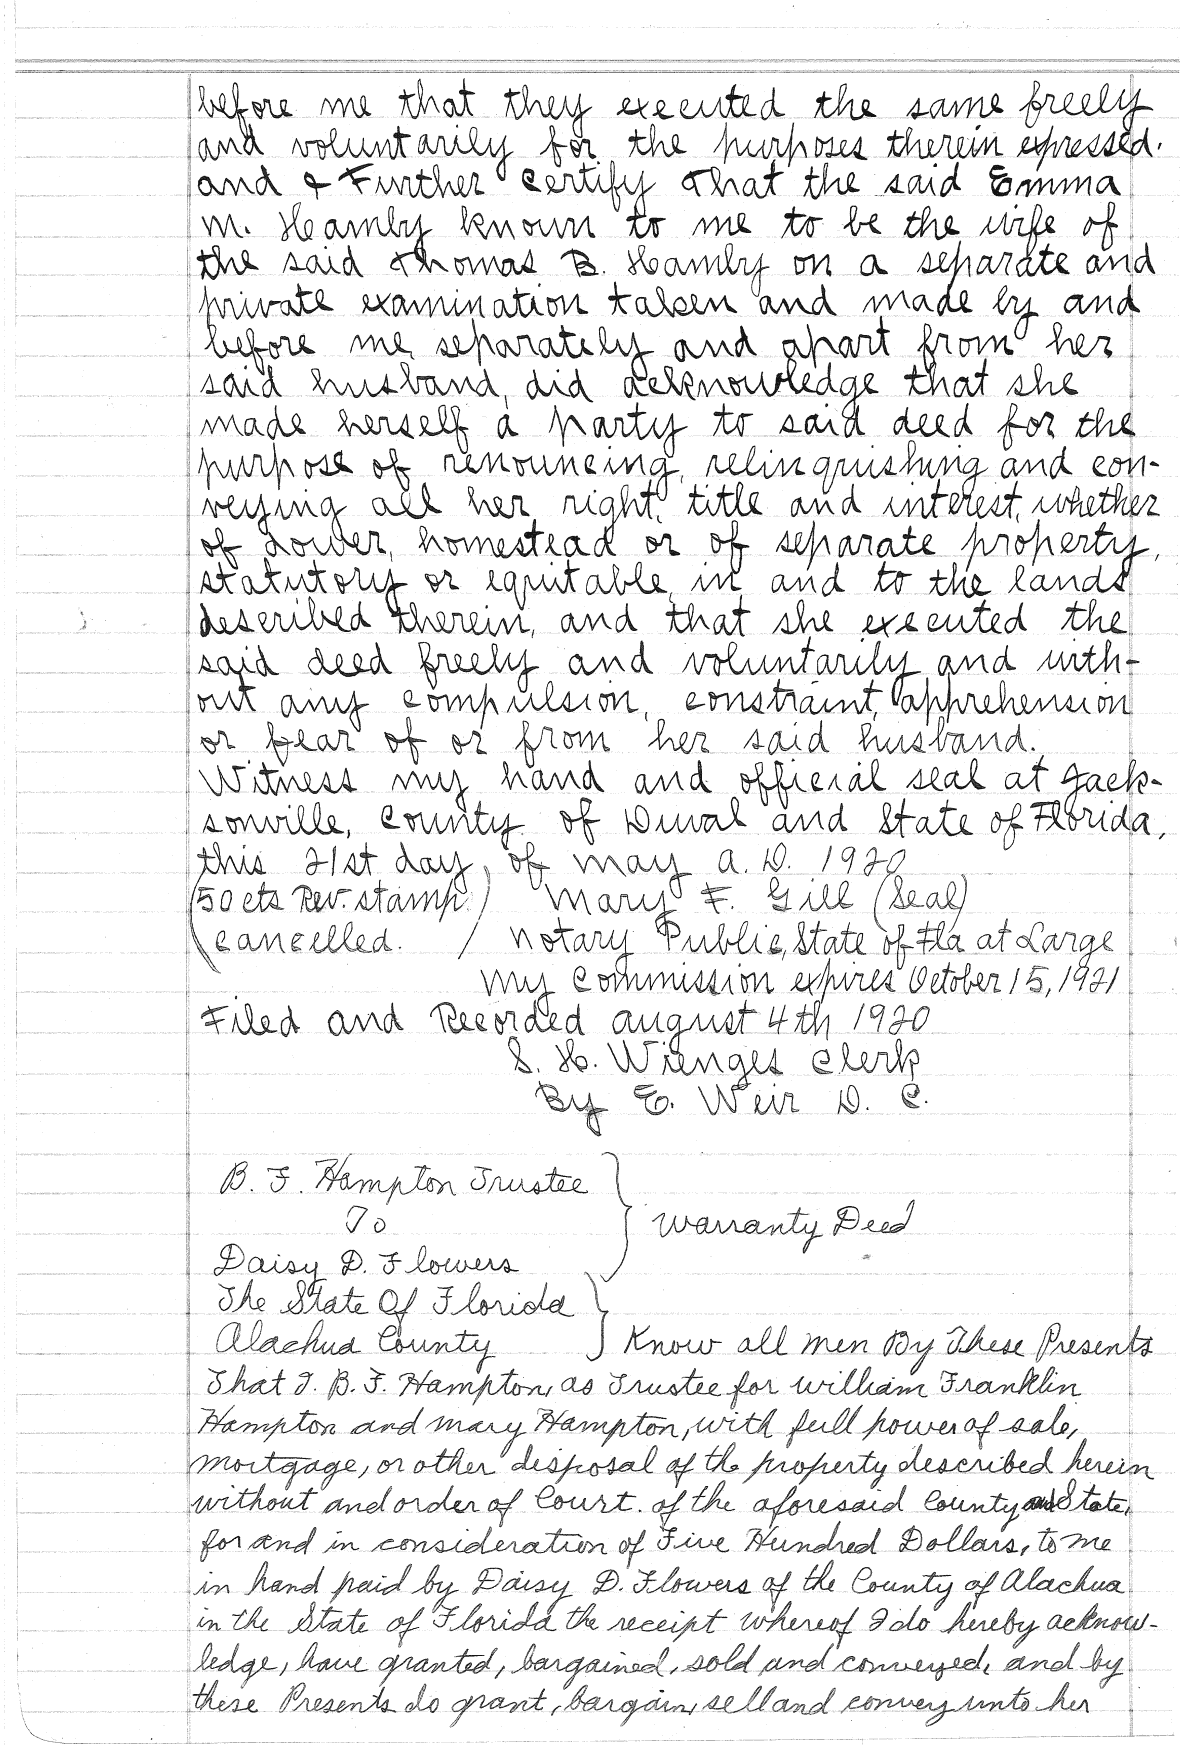 before me that they executed the same freely
and voluntarily for the purposes therein epressed.
and I Further certify that the said Emma
M. Hamby known to me to be the wife of
the said Thomas B. Hamby on a separate and
private examination taken and made by and
before me, separately and apart from her
said husband, did acknowledge that she
made herself a party to said deed for the
purpose of renouncing, relinquishing and con-
veying all her right, title and interest, whether
of dower, homestead or of separate property,
statutory or equitable, in and to the lands
described therein, and that she executed the
said deed freely and voluntarily and with-
out any compulsion, constraint, apprehension
or fear of or from her said husband.
Witness my hand and official seal at Jack-
sonville, County of Duval and State of Florida,
this 21st day, of May A. D. 1920
(50 cts Rev. stamp) Mary F. Gill (Seal)
(cancelled. / Notary Public, State of Fla at Large
My Commission expires October 15, 1921
Filed and Recorded August 4th 1920
S. H. Wienges Clerk
By E. Weir D. C.
B. F. Hampton Trustee
To } Warranty Deed
Daisy D. Flowers
The State Of Florida
Alachua County } Know all Men By These Presents
That I. B. F. Hampton, as Trustee for William Franklin
Hampton and Mary Hampton, with full power of sale,
mortgage, or other disposal of the property described herein
without and order of Court. of the aforesaid County and State,
for and in consideration of Five Hundred Dollars, to me
in hand paid by Daisy D. Flowers of the County of Alachua
in the State of Florida the receipt whereof I do hereby acknow-
ledge, have granted, bargained, sold and conveyed, and by
these Presents do grant, bargain, sell and convey unto her